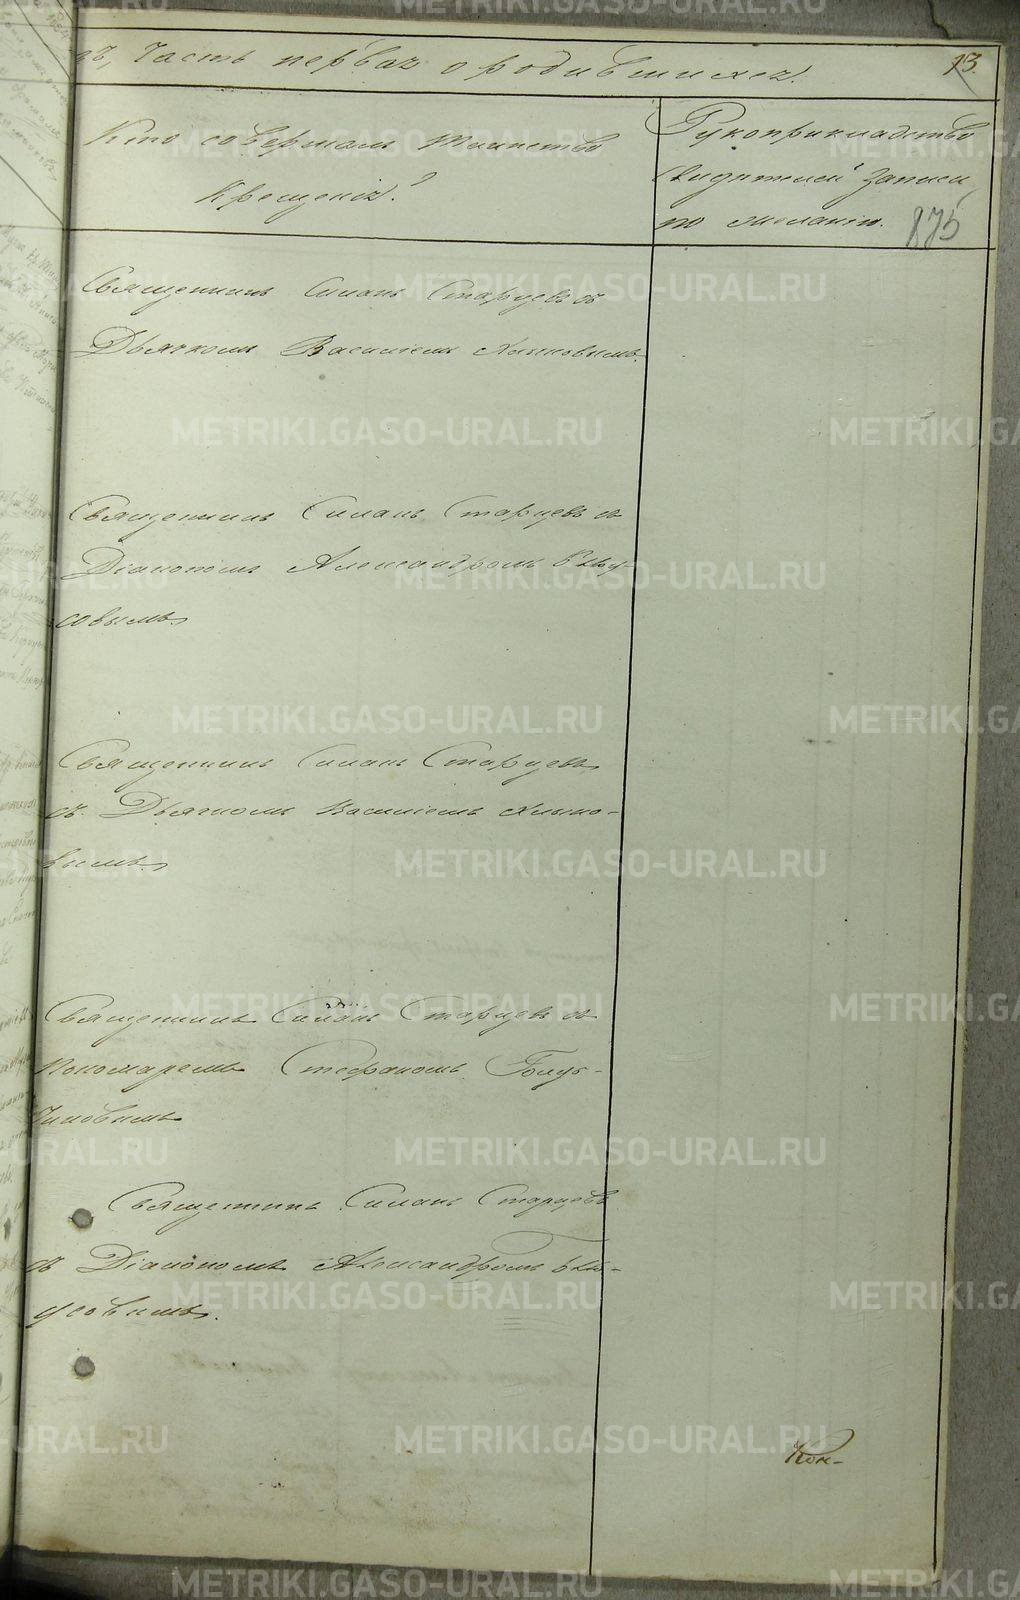 дъ, Часть первая о родившихся.
13.
Кто совершалъ таинство
Крещенія?
Рукоприкладство
свидѣтелей записи
по желанію.
875
Священникъ Силанъ Старцевъ съ
Дьячкомъ Василіемъ Хлыновымъ.
Священникъ Силанъ Старцевъ съ
Діакономъ Александромъ
совымъ
Священникъ Силанъ Старцевъ
съ Дьячкомъ Василіемъ Хлыно-
вымъ
Священникъ Силанъ Старцевъ съ
Пономаремъ Стефаномъ
Священникъ Силанъ Старцевъ
съ Діакономъ Александромъ
усовымъ.
METRIKI.GASO-URAL.RU